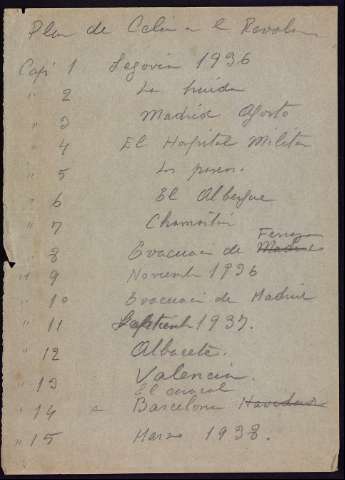 Plan de Celia en la Revolu
Capi 1 Segovia 1936
" 2 La huida
" 3 Madrid Agosto
" 4 El Hospital Militar
" 5 Los paseos.
" 6 El Albergue
" 7 Chamartin
" 8 Evacuaci de Madrid
" 9 Noviemb 1936
" 10 Evacuaci de Madrid
" 11 1937.
" 12 Albacete.
" 13 Valencia.
El
" 14 Barcelona Navidades
" 15 Marzo 1938.